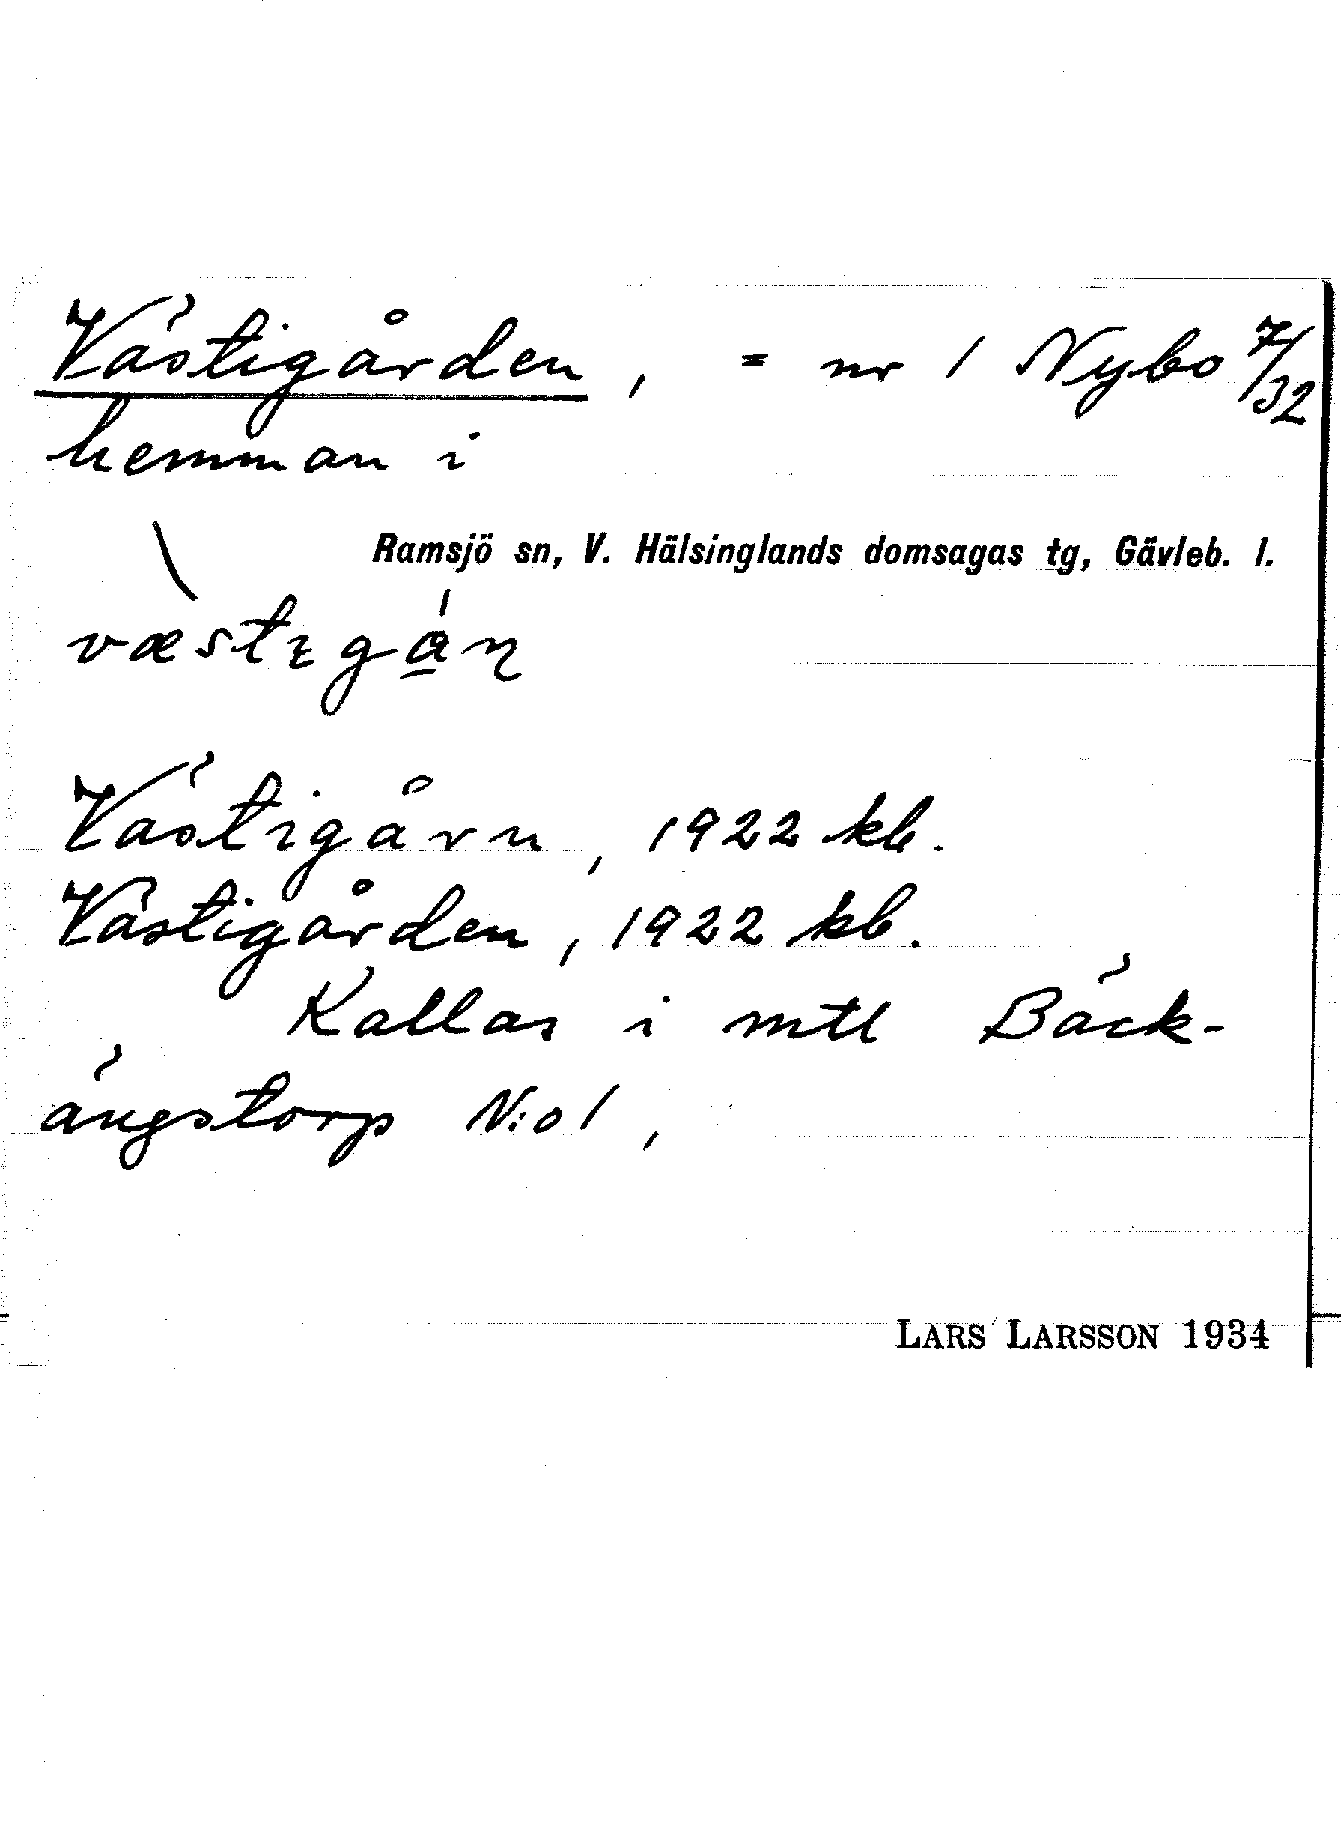 Västigården, = nr 1 Nybo 7/32
hemman i
Ramsjö sn, V. Hälsinglands domsagas tg, Gävleb. l.
Västigårn, 1922 kb.
Västigården, 1922 kb.
Kallas i mtl Bäck-
ängstorp N:o 1,
LARS LARSSON 1934